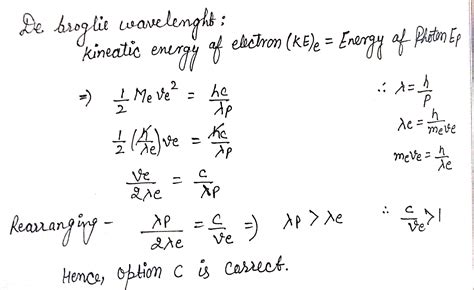 De broglie wavelenght :
Kineatic energy of electron (KE)e = Energy of Photon Ep
⇒ 1/2 Me ve² = hc/λp ∴ λ = h/p
1/2 (h/λe) ve = hc/λp λe = h/meve
ve/2λe = c/λp meve = h/λe
Rearranging - λp/2λe = c/ve ⇒ λp > λe ∴ c/ve > 1
Hence, option C is correct.